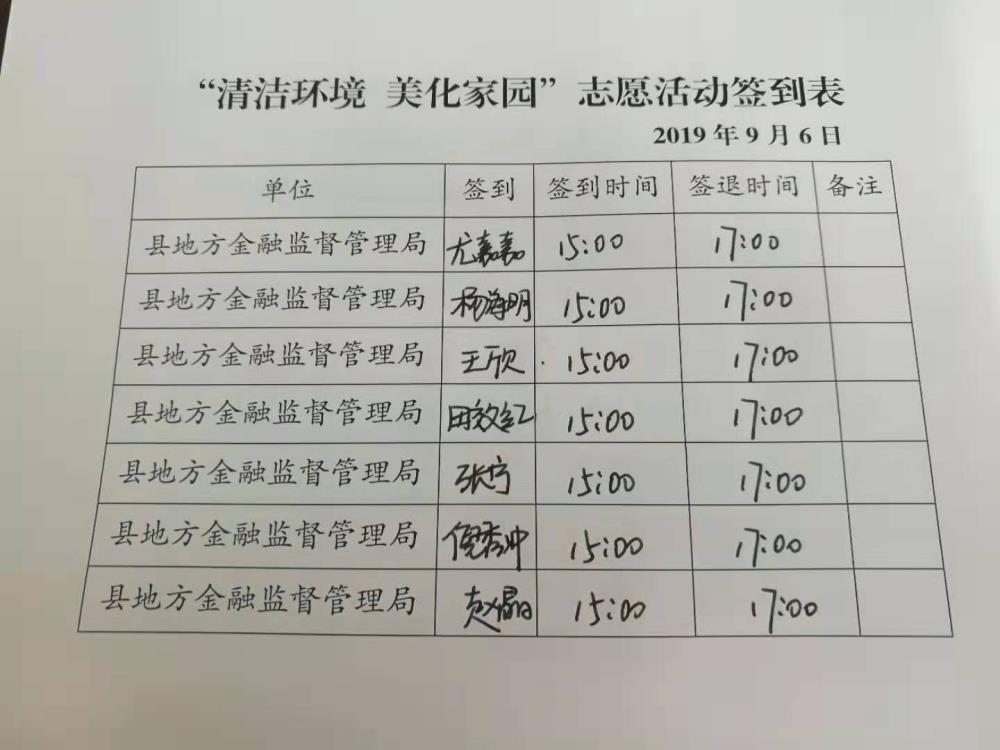 “清洁环境 美化家园”志愿活动签到表
2019年9月6日
单位 签到 签到时间 签退时间 备注
县地方金融监督管理局 尤嘉嘉 15:00 17:00
县地方金融监督管理局 杨海明 15:00 17:00
县地方金融监督管理局 王欣 15:00 17:00
县地方金融监督管理局 田效红 15:00 17:00
县地方金融监督管理局 张宁 15:00 17:00
县地方金融监督管理局 倪秀冲 15:00 17:00
县地方金融监督管理局 赵晶 15:00 17:00